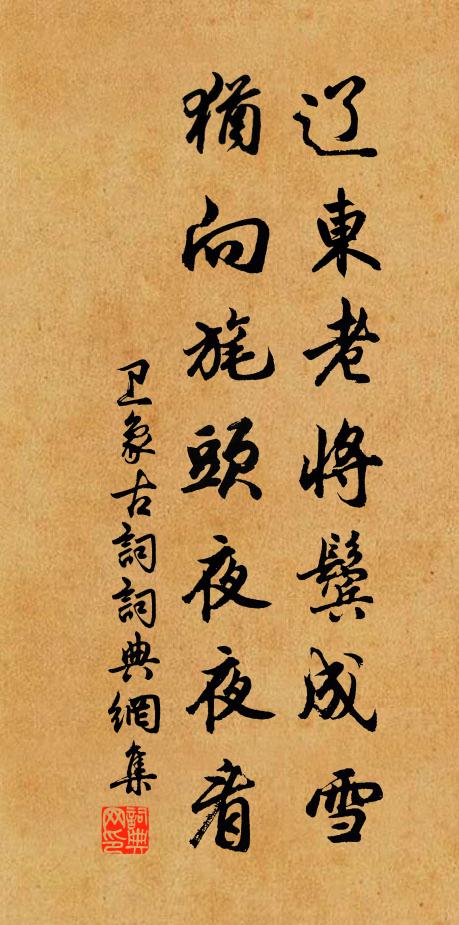 辽東老將鬢成雪
猶向旄頭夜夜看
卫象古詞詞典網集
詞典
网印